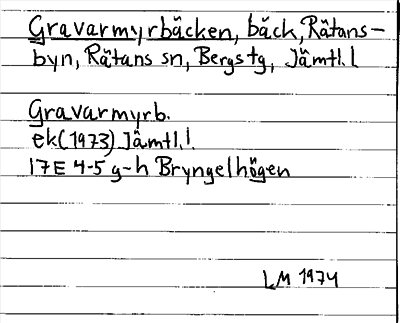 Gravarmyrbäcken, bäck, Rätans-
byn, Rätans sn, Bergs tg, Jämtl. l
Gravarmyrb.
ek (1973) Jämtl. l.
17E 4-5 g-h Bryngelhögen
LM 1974